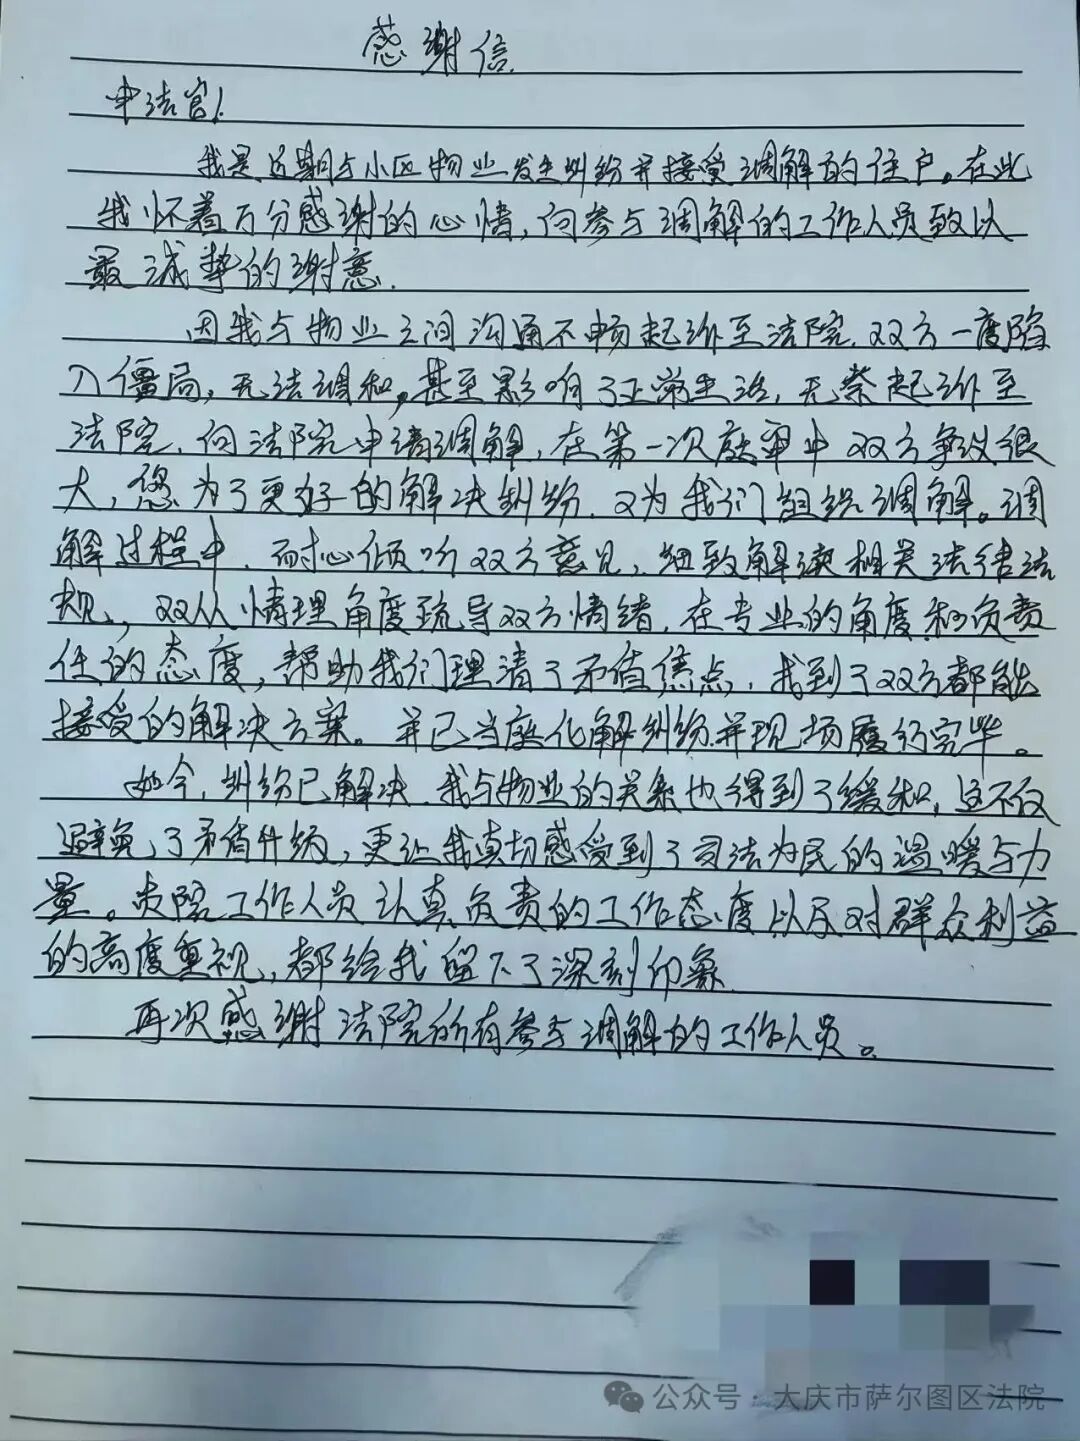 感谢信
申法官!
我是近期与小区物业发生纠纷并接受调解的住户。在此
我怀着万分感谢的心情,向参与调解的工作人员致以
最诚挚的谢意.
因我与物业之间沟通不畅起诉至法院.双方一度陷
入僵局,无法调和,甚至影响了正常生活,无奈起诉至
法院,向法院申请调解,在第一次庭审中双方争议很
大,您为了更好的解决纠纷.又为我们组织调解。调
解过程中.耐心倾听双方意见,细致解读相关法律法
规,双从情理角度疏导双方情绪.在专业的角度和负责
任的态度,帮助我们理清了矛值焦点.找到了双方都能
接受的解决方案。并已当庭化解纠纷并现场履行完毕。
如今,纠纷已解决.我与物业的关系也得到了缓和,这不仅
避免了矛盾升级,更让我真切感受到了司法为民的温暖与力
量。贵院工作人员认真负责的工作态度以及对群众利益
的高度重视,都给我留下了深刻印象.
再次感谢法院所有参与调解的工作人员。
公众号·大庆市萨尔图区法院